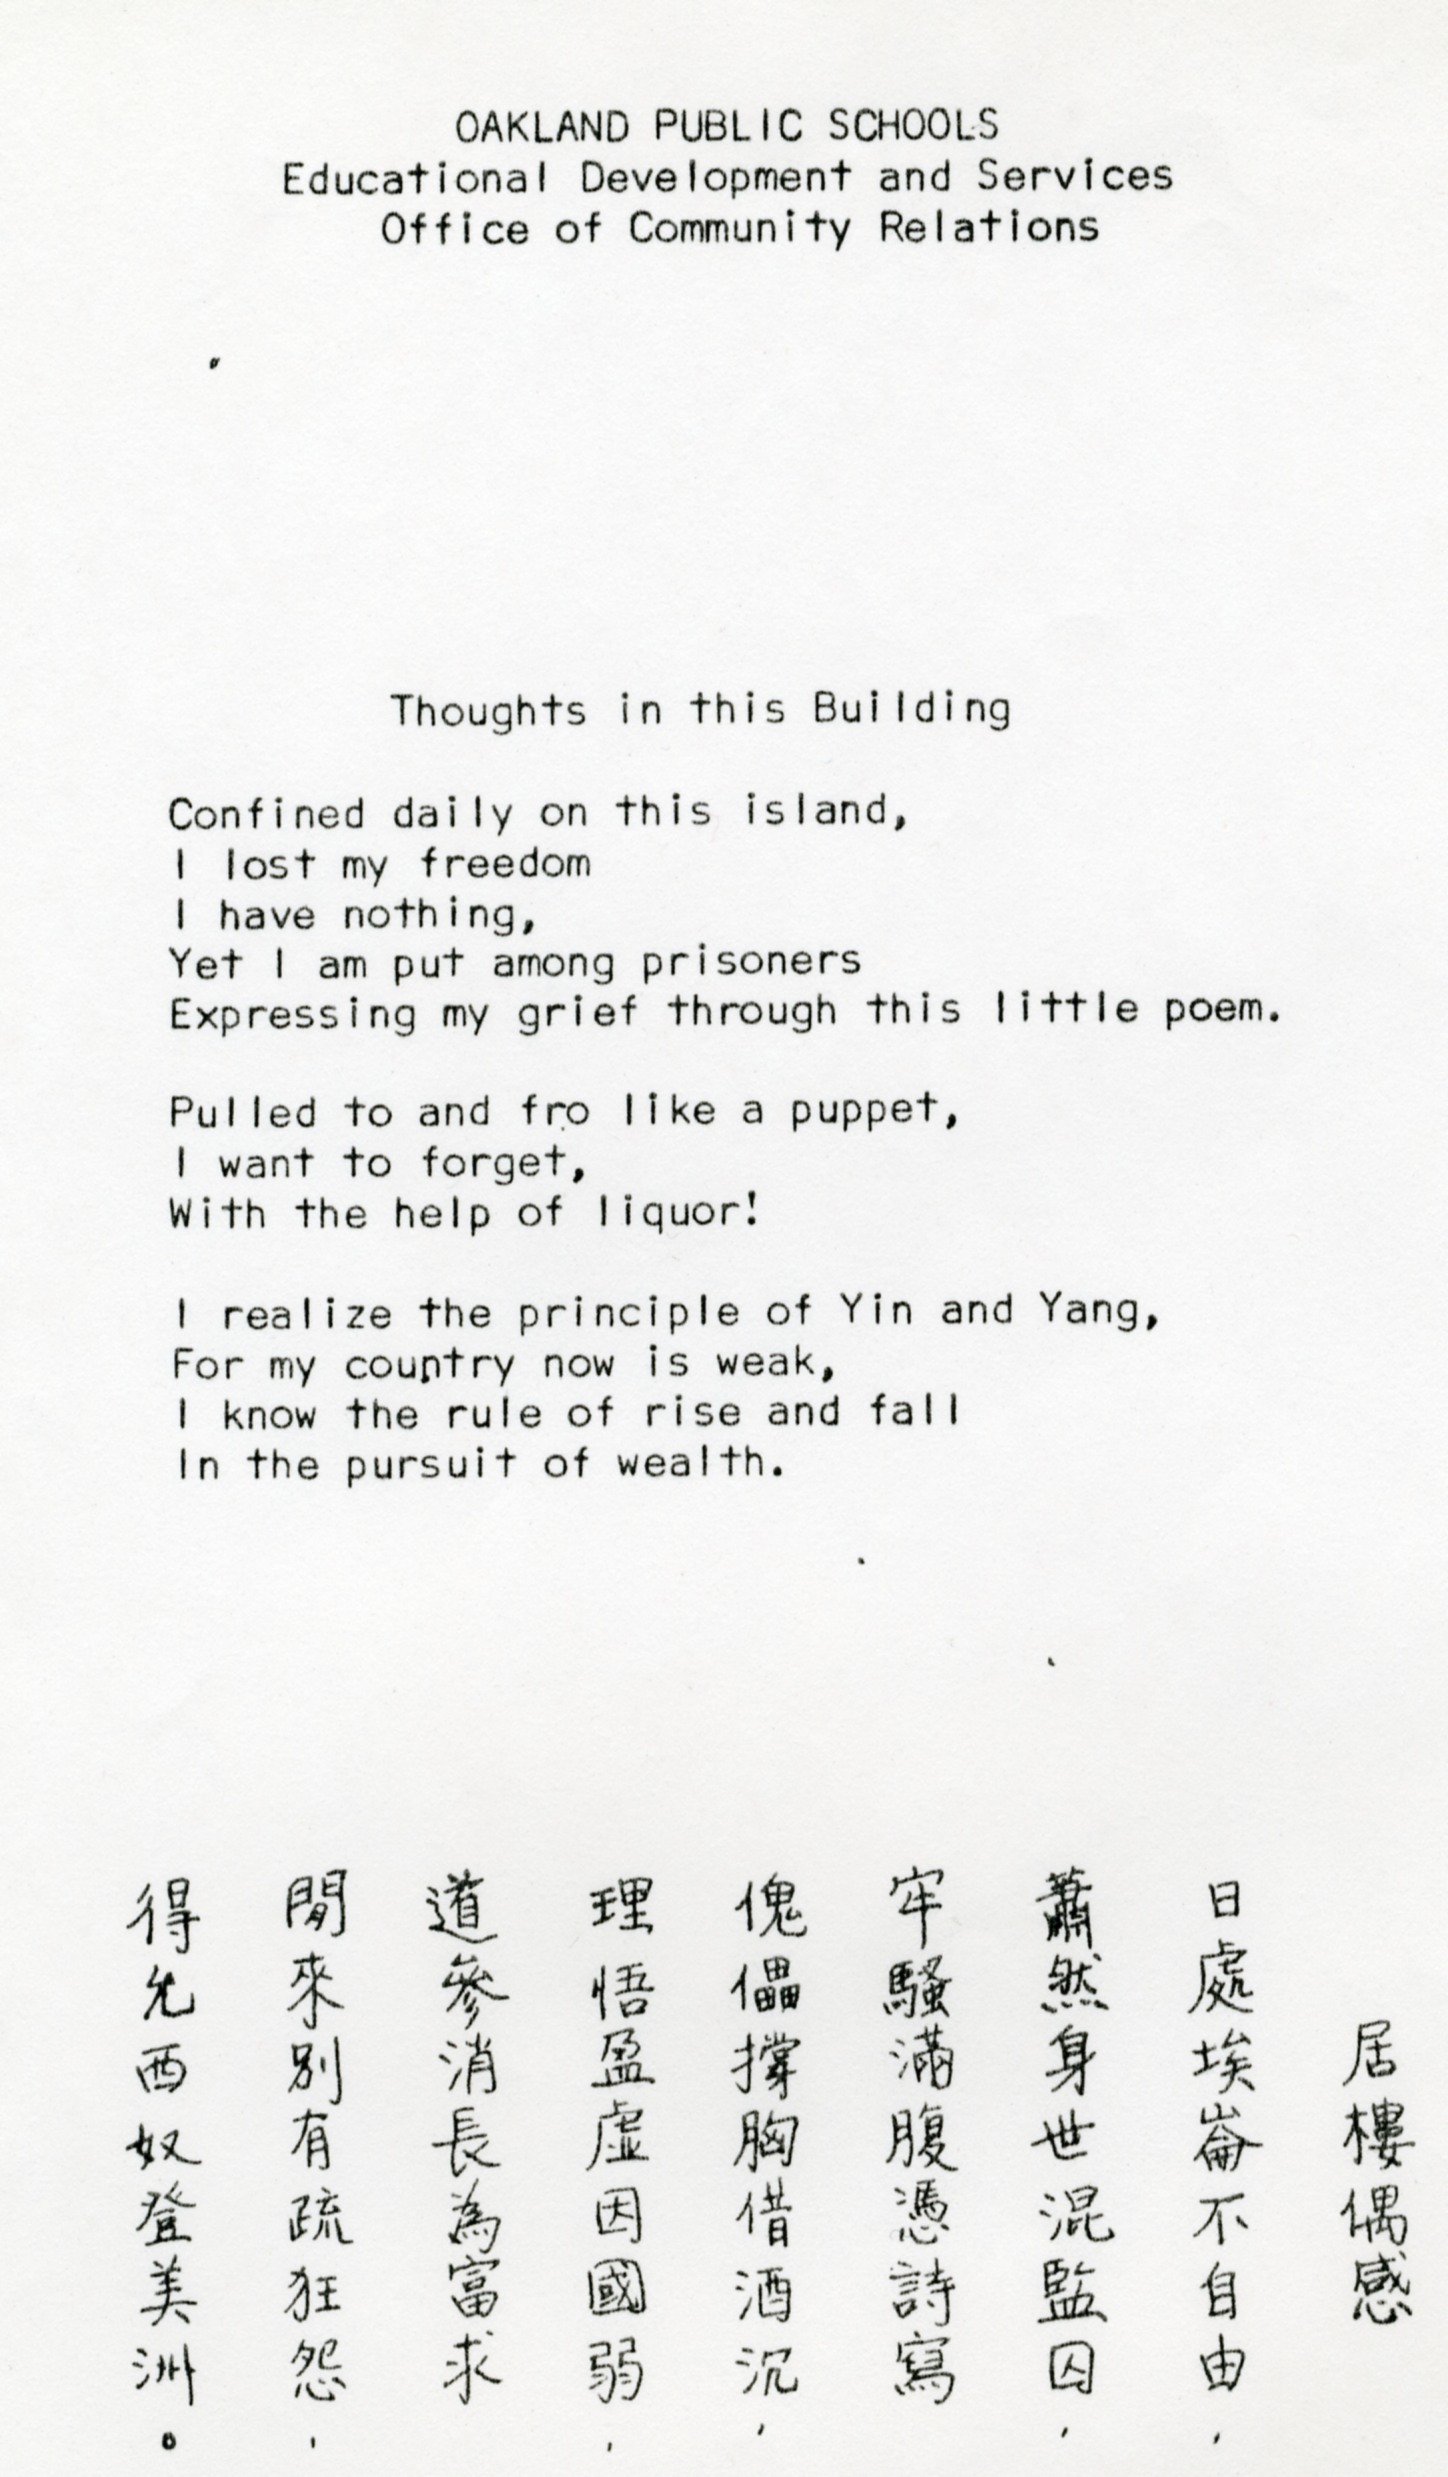 OAKLAND PUBLIC SCHOOLS
Educational Development and Services
Office of Community Relations
Thoughts in this Building
Confined daily on this island,
I lost my freedom
I have nothing,
Yet I am put among prisoners
Expressing my grief through this little poem.
Pulled to and fro like a puppet,
I want to forget,
With the help of liquor!
I realize the principle of Yin and Yang,
For my country now is weak,
I know the rule of rise and fall
In the pursuit of wealth.
居樓偶感
日處埃崙不自由，
蕭然身世混監囚，
牢騷滿腹憑詩寫
傀儡撐胸借酒沉，
理悟盈虛因國弱，
道參消長為富求
閒來別有疏狂怨，
得允西奴登美洲。